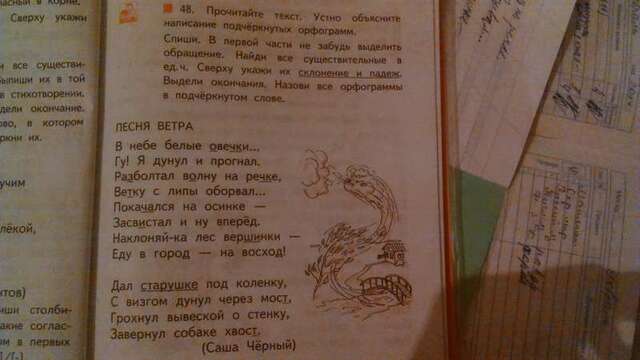 асный в корне.
Сверху укажи
и все существи-
ыпиши их в той
в стихотворении.
дели окончание.
ово, в котором
ркни их.
учим
лёкой,
нтов)
пиши столби-
акие соглас-
м в первых
48. Прочитайте текст. Устно объясните
написание подчёркнутых орфограмм.
Спиши. В первой части не забудь выделить
обращение. Найди все существительные в
ед. ч. Сверху укажи их склонение и падеж.
Выдели окончания. Назови все орфограммы
в подчёркнутом слове.
ПЕСНЯ ВЕТРА
В небе белые овечки...
Гу! Я дунул и прогнал.
Разболтал волну на речке,
Ветку с липы оборвал...
Покачался на осинке —
Засвистал и ну вперёд.
Наклоняй-ка лес вершинки —
Еду в город — на восход!
Дал старушке под коленку,
С визгом дунул через мост,
Грохнул вывеской о стенку,
Завернул собаке хвост.
(Саша Чёрный)